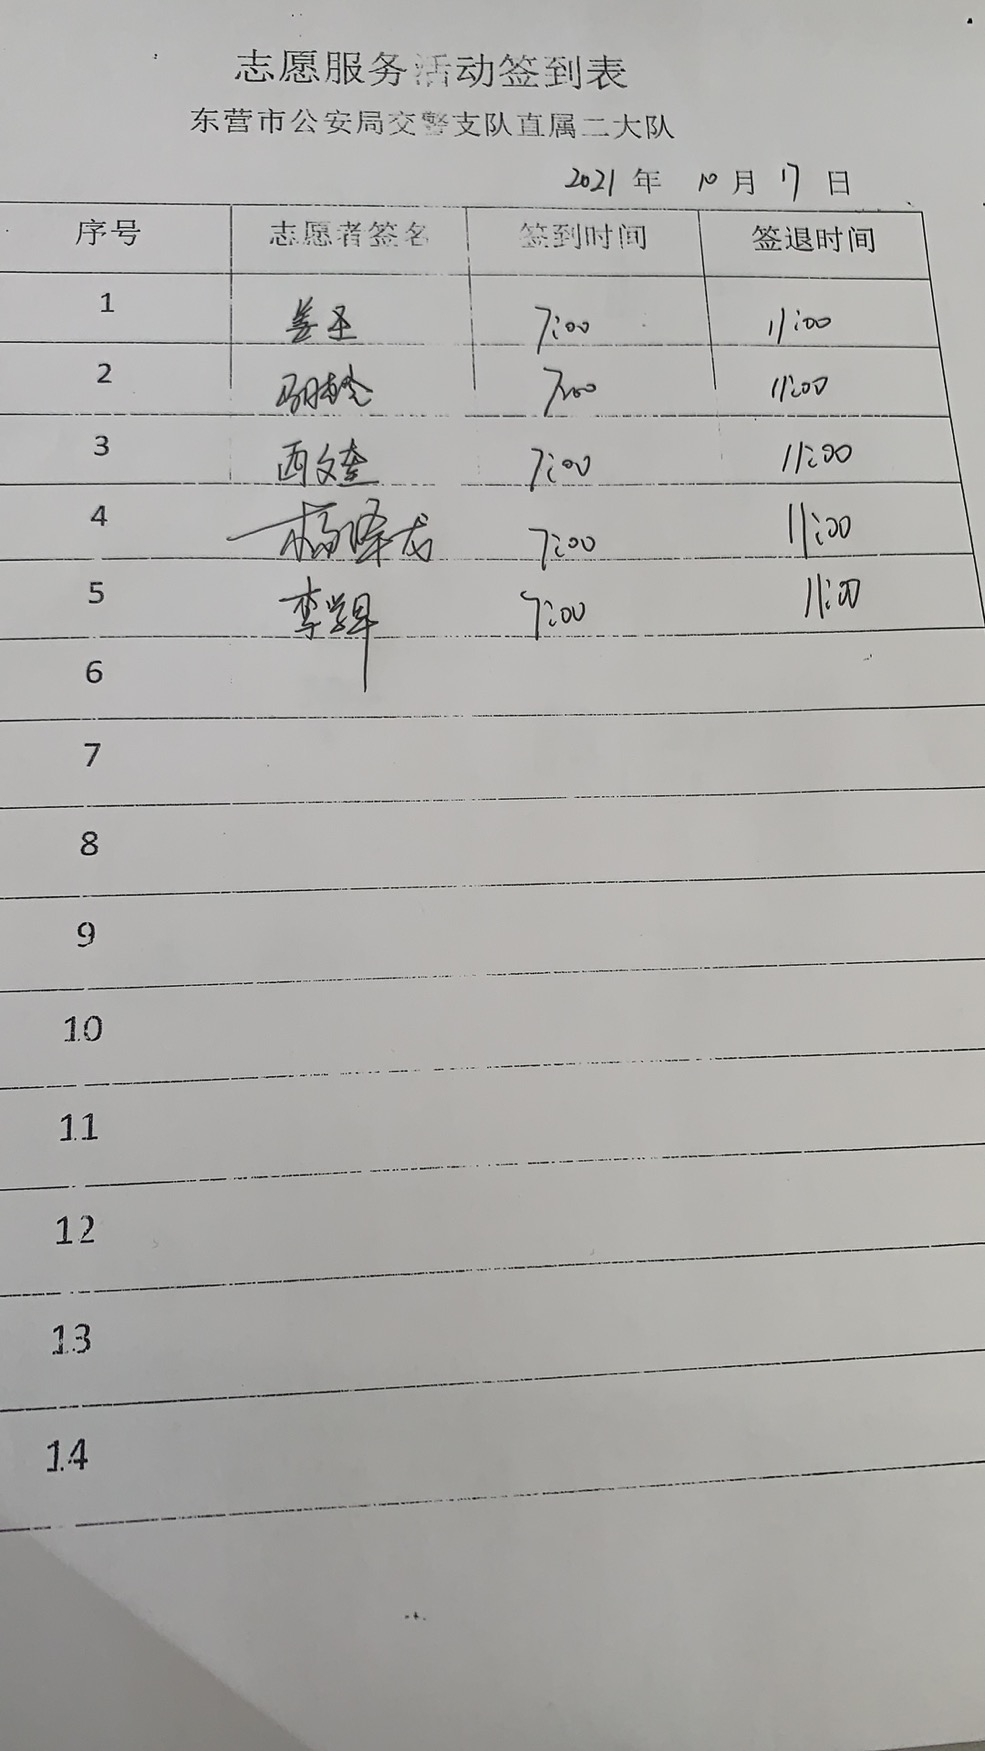 志愿服务活动签到表
东营市公安局交警支队直属二大队
2021 年 10 月 17 日
序号 志愿者签名 签到时间 签退时间
1 姜圣 7:00 11:00
2 7:00 11:00
3 西文奎 7:00 11:00
4 杨峰龙 7:00 11:00
5 李学军 7:00 11:00
6
7
8
9
10
11
12
13
14